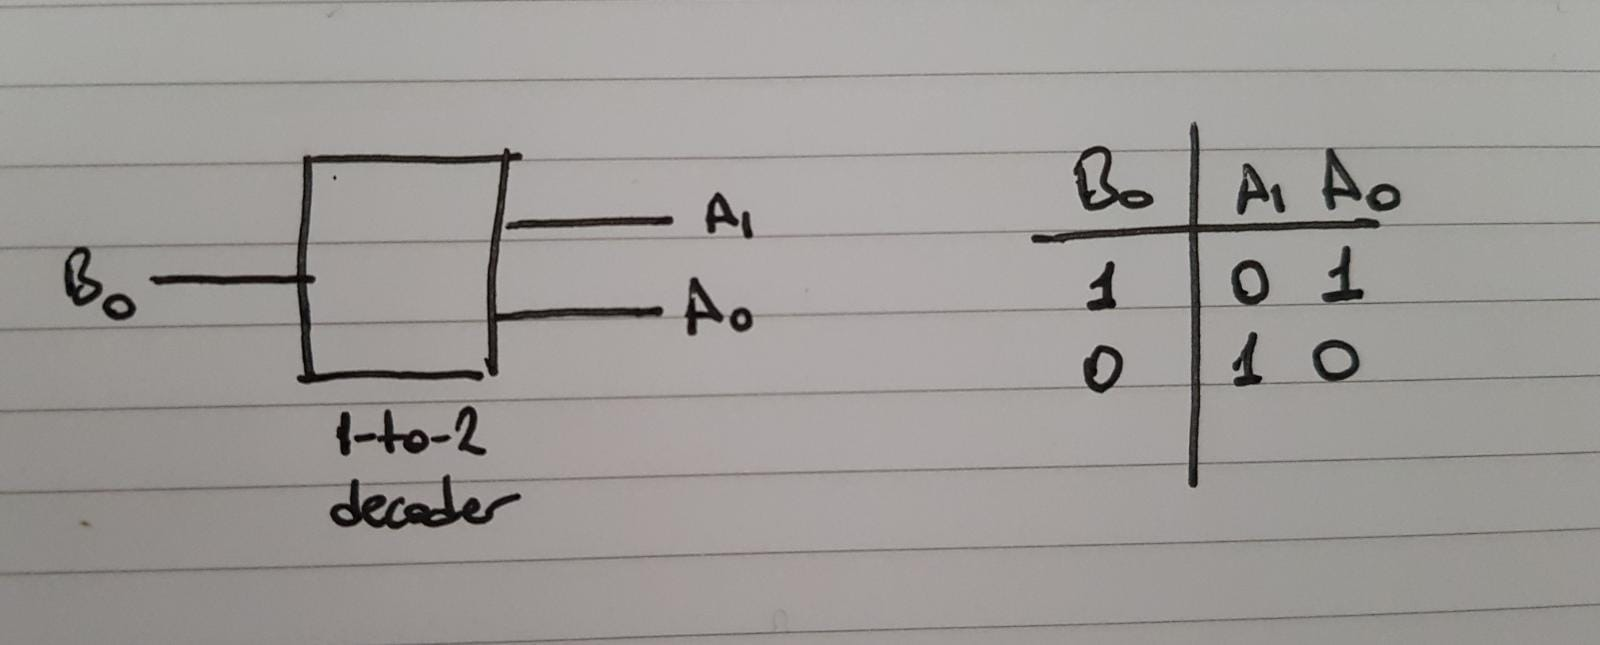 A₁
B₀
A₀
1-to-2
decoder
B₀ A₁ A₀
1 0 1
0 1 0